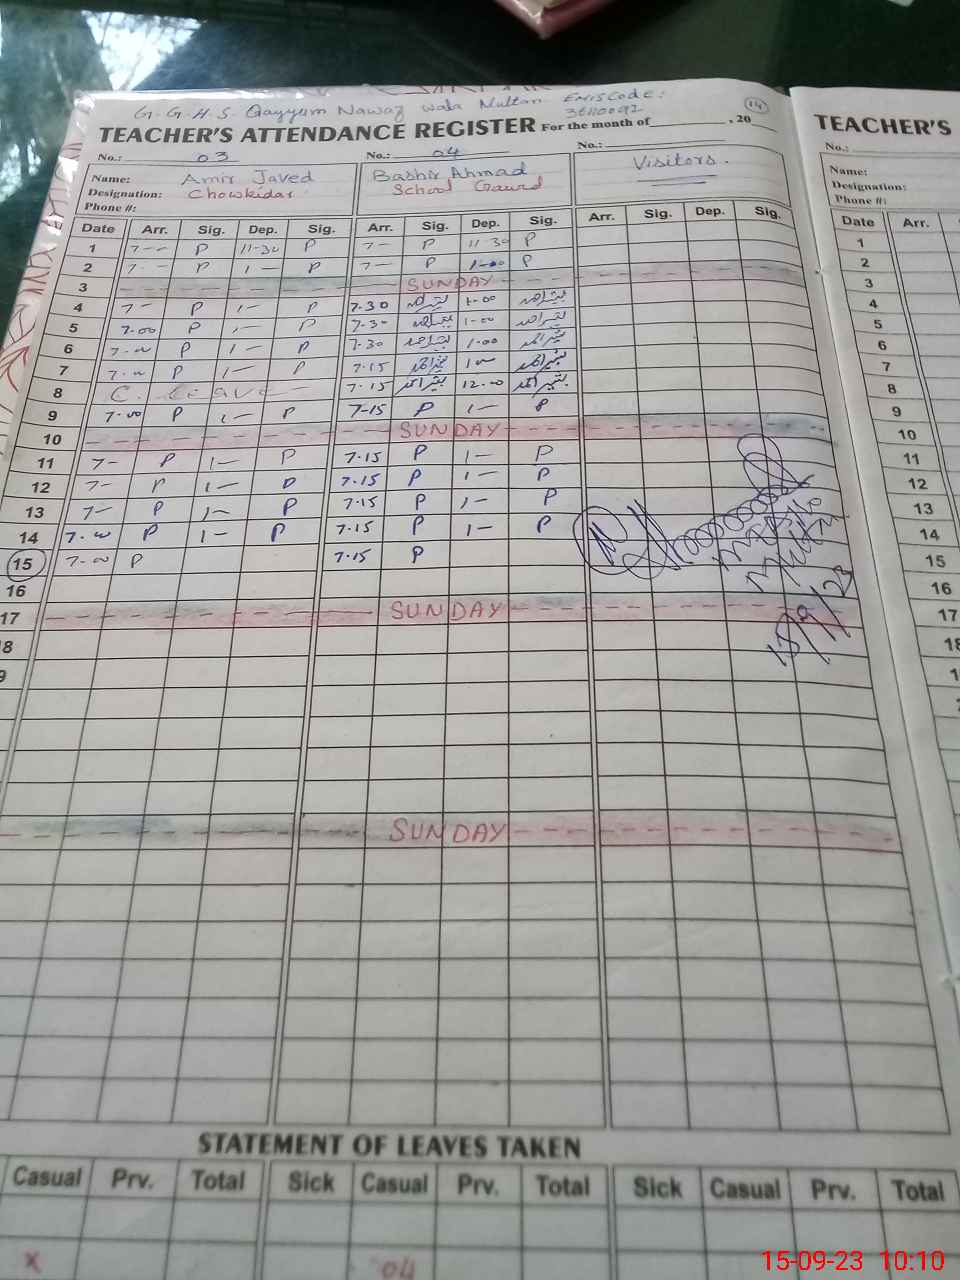 G.G.H.S. Qayyum Nawaz wala Multan EMIS Code: 36110092
14
TEACHER'S ATTENDANCE REGISTER For the month of , 20
No.: 03 No.: 04 No.:
Name: Amir Javed Bashir Ahmad Visitors.
Designation: Chowkidar School Gaurd
Phone #:
Date Arr. Sig. Dep. Sig. Arr. Sig. Dep. Sig. Arr. Sig. Dep. Sig.
1 7-- P 11-30 P 7- P 11-30 P
2 7-- P 1- P 7- P 1-00 P
3 SUNDAY
4 7- P 1- P 7.30 بشیراحمد 1-00 بشیراحمد
5 7.00 P 1- P 7-30 بشیراحمد 1-00 بشیراحمد
6 7.00 P 1- P 7-30 بشیراحمد 1.00 بشیراحمد
7 7.00 P 1- P 7.15 بشیراحمد 1- بشیراحمد
8 C. leave - 7.15 بشیراحمد 12.00 بشیراحمد
9 7.00 P 1- P 7-15 P 1- P
10 SUNDAY
11 7- P 1- P 7.15 P 1- P
12 7- P 1- P 7.15 P 1- P
13 7- P 1- P 7.15 P 1- P
14 7.00 P 1- P 7.15 P 1- P
15 7-00 P 7.15 P
16
17 SUNDAY
15/9/23
18
9
SUNDAY
STATEMENT OF LEAVES TAKEN
Casual Prv. Total Sick Casual Prv. Total Sick Casual Prv. Total
x 04
TEACHER'S
No.:
Name:
Designation:
Phone #:
Date Arr.
1
2
3
4
5
6
7
8
9
10
11
12
13
14
15
16
17
18
15-09-23 10:10